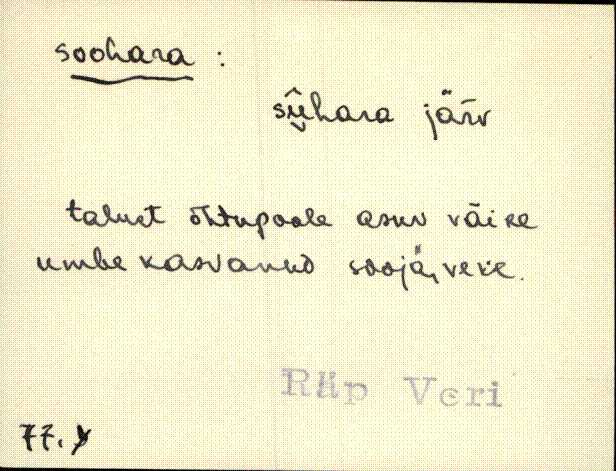 soohara :
sṷhara järv
talust õhtupoole asuv väike
umbe kasvanud soojä,veke.
Räp Veri
77. y